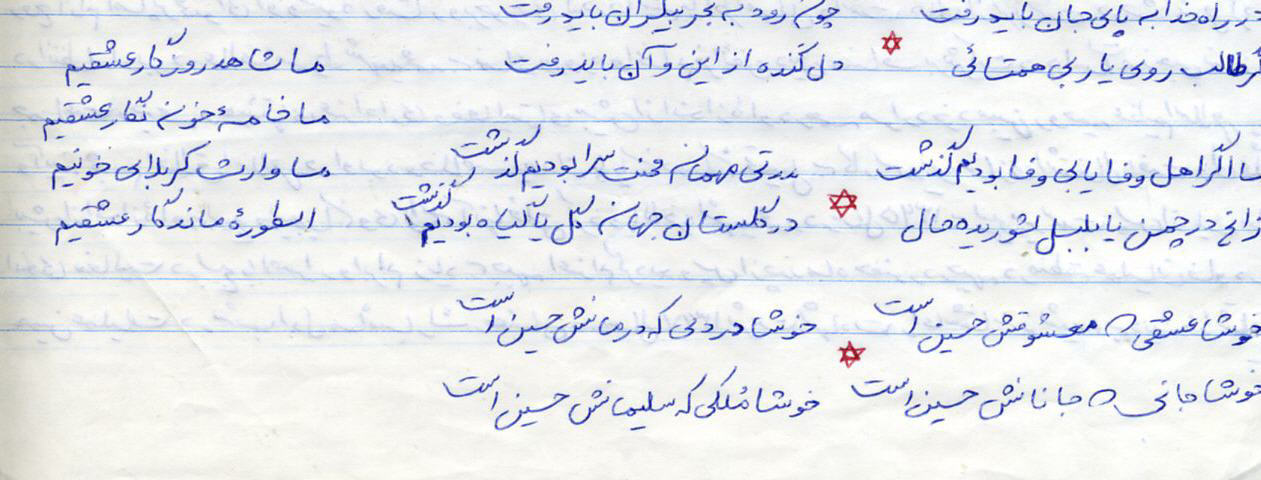 در راه خدا به پای جان باید رفت چون رود به بحر بیکران باید رفت
گر طالب روی یار بی همتائی دل کنده از این و آن باید رفت
ما شاهد روزگار عشقیم
ما خامهٔ خون نگار عشقیم
ما وارث کربلای خونیم
اسطورهٔ ماندگار عشقیم
ما اگر اهل وفا یا بی وفا بودیم گذشت مدتی مهمان محنت سرا بودیم گذشت
زاغ در چمن یا بلبل شوریده حال در گلستان جهان گل یا گیاه بودیم گذشت
خوشا عشقی که معشوقش حسین است خوشا دردی که درمانش حسین است
خوشا جانی که جانانش حسین است خوشا مُلکی که سلیمانش حسین است